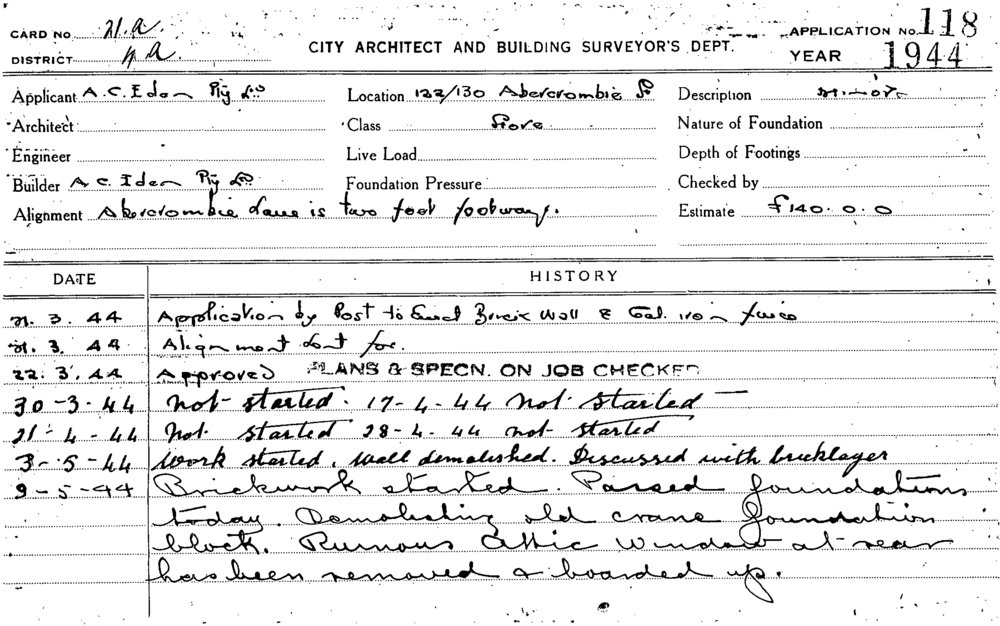 CARD NO 21.a. APPLICATION NO. 118
DISTRICT CITY ARCHITECT AND BUILDING SURVEYOR'S DEPT. YEAR 1944
Applicant A.C. Iden Pty Ld Location 122/130 Abercrombie St Description
Architect Class Store Nature of Foundation
Engineer Live Load Depth of Footings
Builder A.C. Iden Pty Ld Foundation Pressure Checked by
Alignment Abercrombie Lane is two foot footways. Estimate £140.0.0
DATE HISTORY
21. 3. 44 Application by Post to Erect Brick Wall & Gal. iron fence
21. 3. 44 Alignment sent for.
22. 3. 44 Approved PLANS & SPECN. ON JOB CHECKED
30-3-44 Not started. 17-4-44 Not started
21-4-44 Not started 28-4-44 not started
3-5-44 Work started, wall demolished. Discussed with bricklayer
9-5-44 Brickwork started. Passed foundations
today. Demolishing old crane foundation
block. Ruinous attic window at rear
has been removed & boarded up.